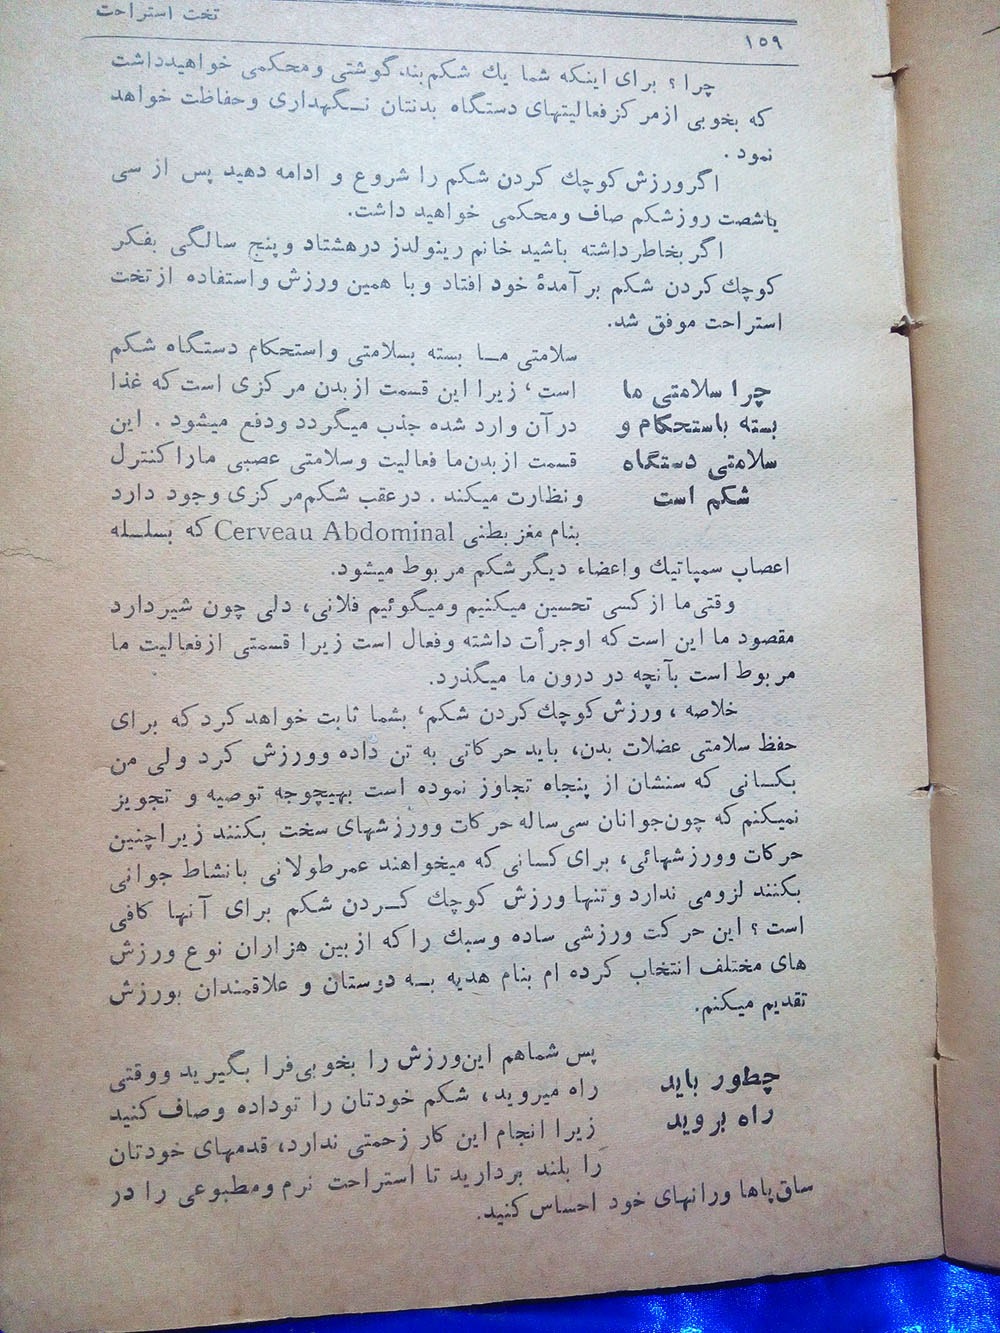 ۱۵۹
تخت استراحت
چرا؟ برای اینکه شما یك شکم بند، گوشتی و محکمی خواهید داشت
که بخوبی از مرکز فعالیتهای دستگاه بدنتان نگهداری و حفاظت خواهد
نمود.
اگر ورزش کوچك کردن شکم را شروع و ادامه دهید پس از سی
یا شصت روز شکم صاف و محکمی خواهید داشت.
اگر بخاطر داشته باشید خانم رینولدز در هشتاد و پنج سالگی بفکر
کوچك کردن شکم برآمدهٔ خود افتاد و با همین ورزش و استفاده از تخت
استراحت موفق شد.
چرا سلامتی ما
بسته باستحکام و
سلامتی دستگاه
شکم است
سلامتی ما بسته بسلامتی و استحکام دستگاه شکم
است، زیرا این قسمت از بدن مرکزی است که غذا
در آن وارد شده جذب میگردد و دفع میشود. این
قسمت از بدن ما فعالیت و سلامتی عصبی ما را کنترل
و نظارت میکند. در عقب شکم مرکزی وجود دارد
بنام مغز بطنی Cerveau Abdominal که بسلسله
اعصاب سمپاتیك و اعضاء دیگر شکم مربوط میشود.
وقتی ما از کسی تحسین میکنیم و میگوئیم فلانی، دلی چون شیر دارد
مقصود ما این است که او جرأت داشته و فعال است زیرا قسمتی از فعالیت ما
مربوط است بآنچه در درون ما میگذرد.
خلاصه، ورزش کوچك کردن شکم، بشما ثابت خواهد کرد که برای
حفظ سلامتی عضلات بدن، باید حرکاتی به تن داده و ورزش کرد ولی من
بکسانی که سنشان از پنجاه تجاوز نموده است بهیچوجه توصیه و تجویز
نمیکنم که چون جوانان سی ساله حرکات و ورزشهای سخت بکنند زیرا چنین
حرکات و ورزشهائی، برای کسانی که میخواهند عمر طولانی با نشاط جوانی
بکنند لزومی ندارد و تنها ورزش کوچك کردن شکم برای آنها کافی
است؟ این حرکت ورزشی ساده و سبك را که از بین هزاران نوع ورزش
های مختلف انتخاب کرده ام بنام هدیه به دوستان و علاقمندان بورزش
تقدیم میکنم.
چطور باید
راه بروید
پس شماهم این ورزش را بخوبی فرا بگیرید و وقتی
راه میروید، شکم خودتان را تو داده و صاف کنید
زیرا انجام این کار زحمتی ندارد، قدمهای خودتان
را بلند بردارید تا استراحت نرم و مطبوعی را در
ساق پاها و رانهای خود احساس کنید.